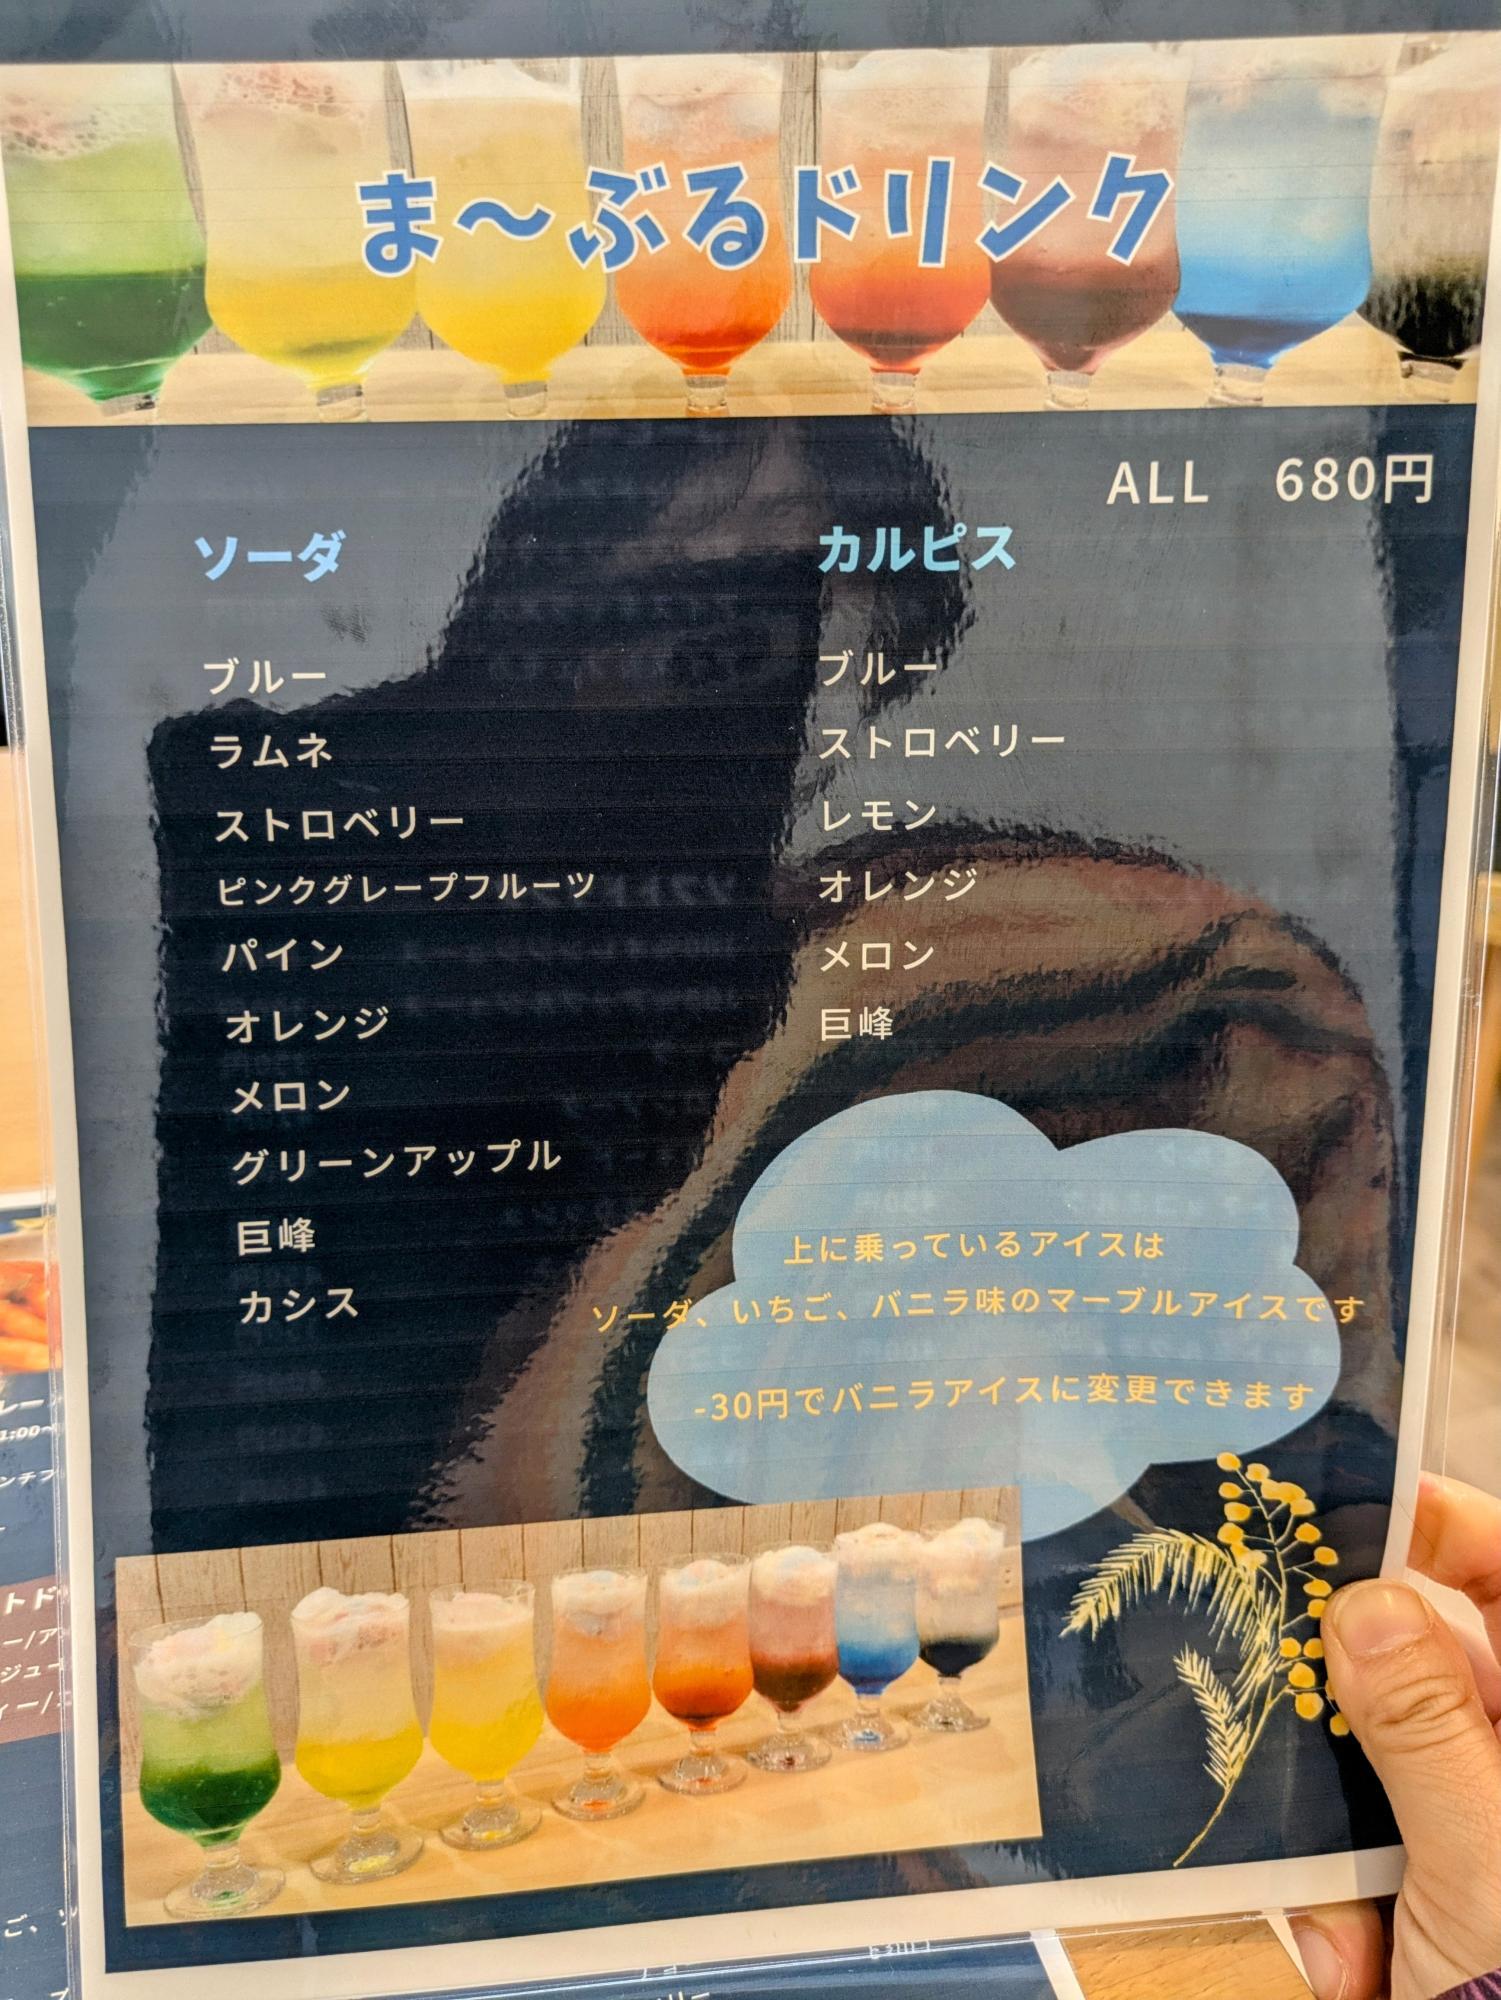 ま〜ぶるドリンク
ALL 680円
ソーダ
ブルー
ラムネ
ストロベリー
ピンクグレープフルーツ
パイン
オレンジ
メロン
グリーンアップル
巨峰
カシス
カルピス
ブルー
ストロベリー
レモン
オレンジ
メロン
巨峰
上に乗っているアイスは
ソーダ、いちご、バニラ味のマーブルアイスです
-30円でバニラアイスに変更できます